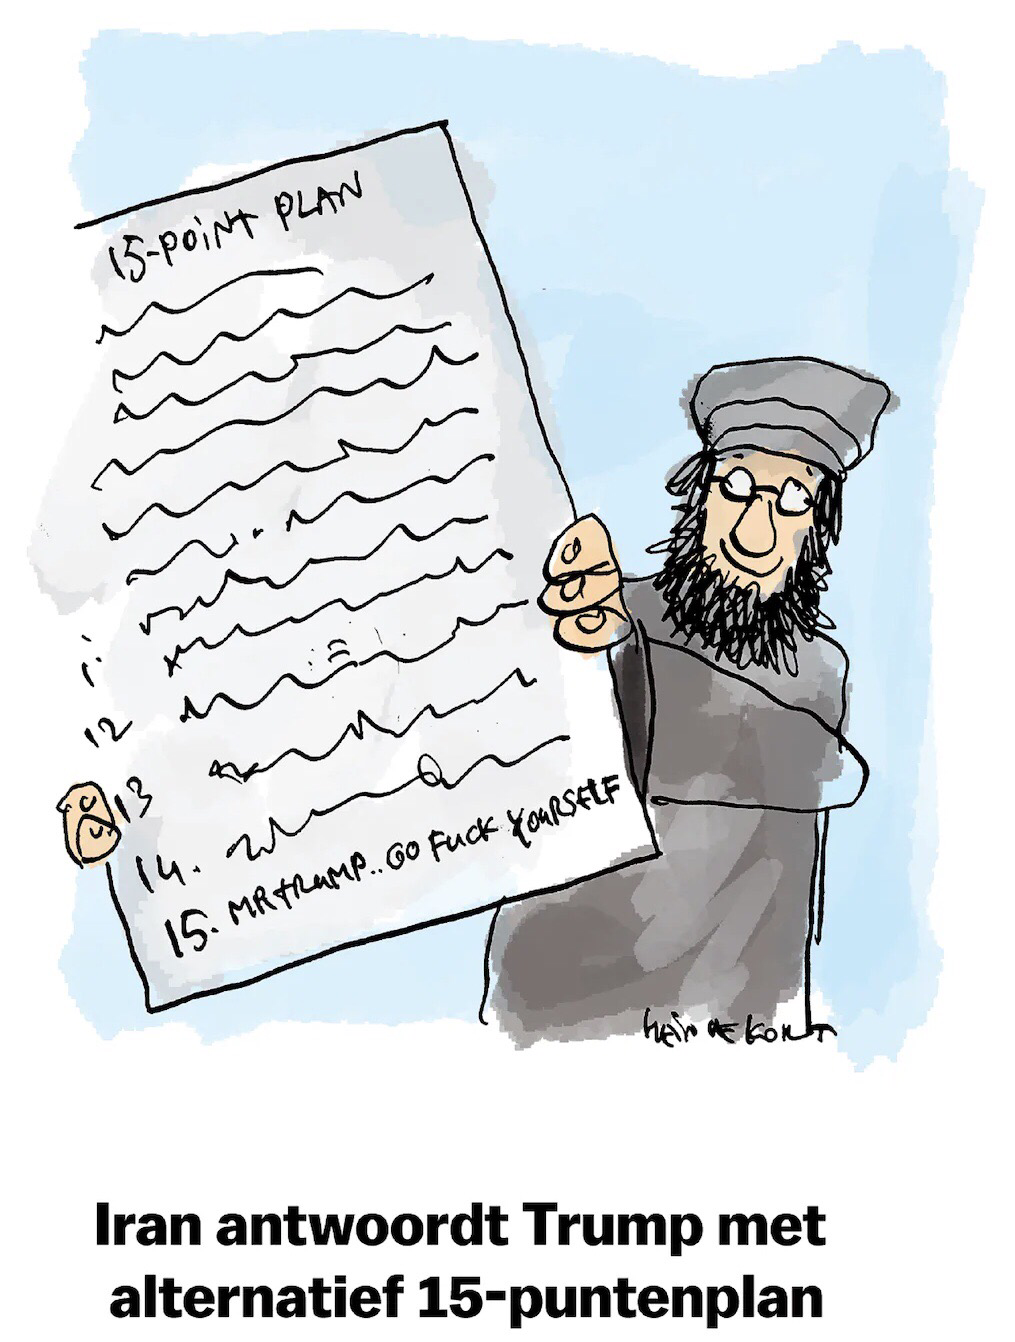 15-POINT PLAN
12
13
14.
15. MR TRUMP.. GO FUCK YOURSELF
HEIN DE KORT
Iran antwoordt Trump met
alternatief 15-puntenplan